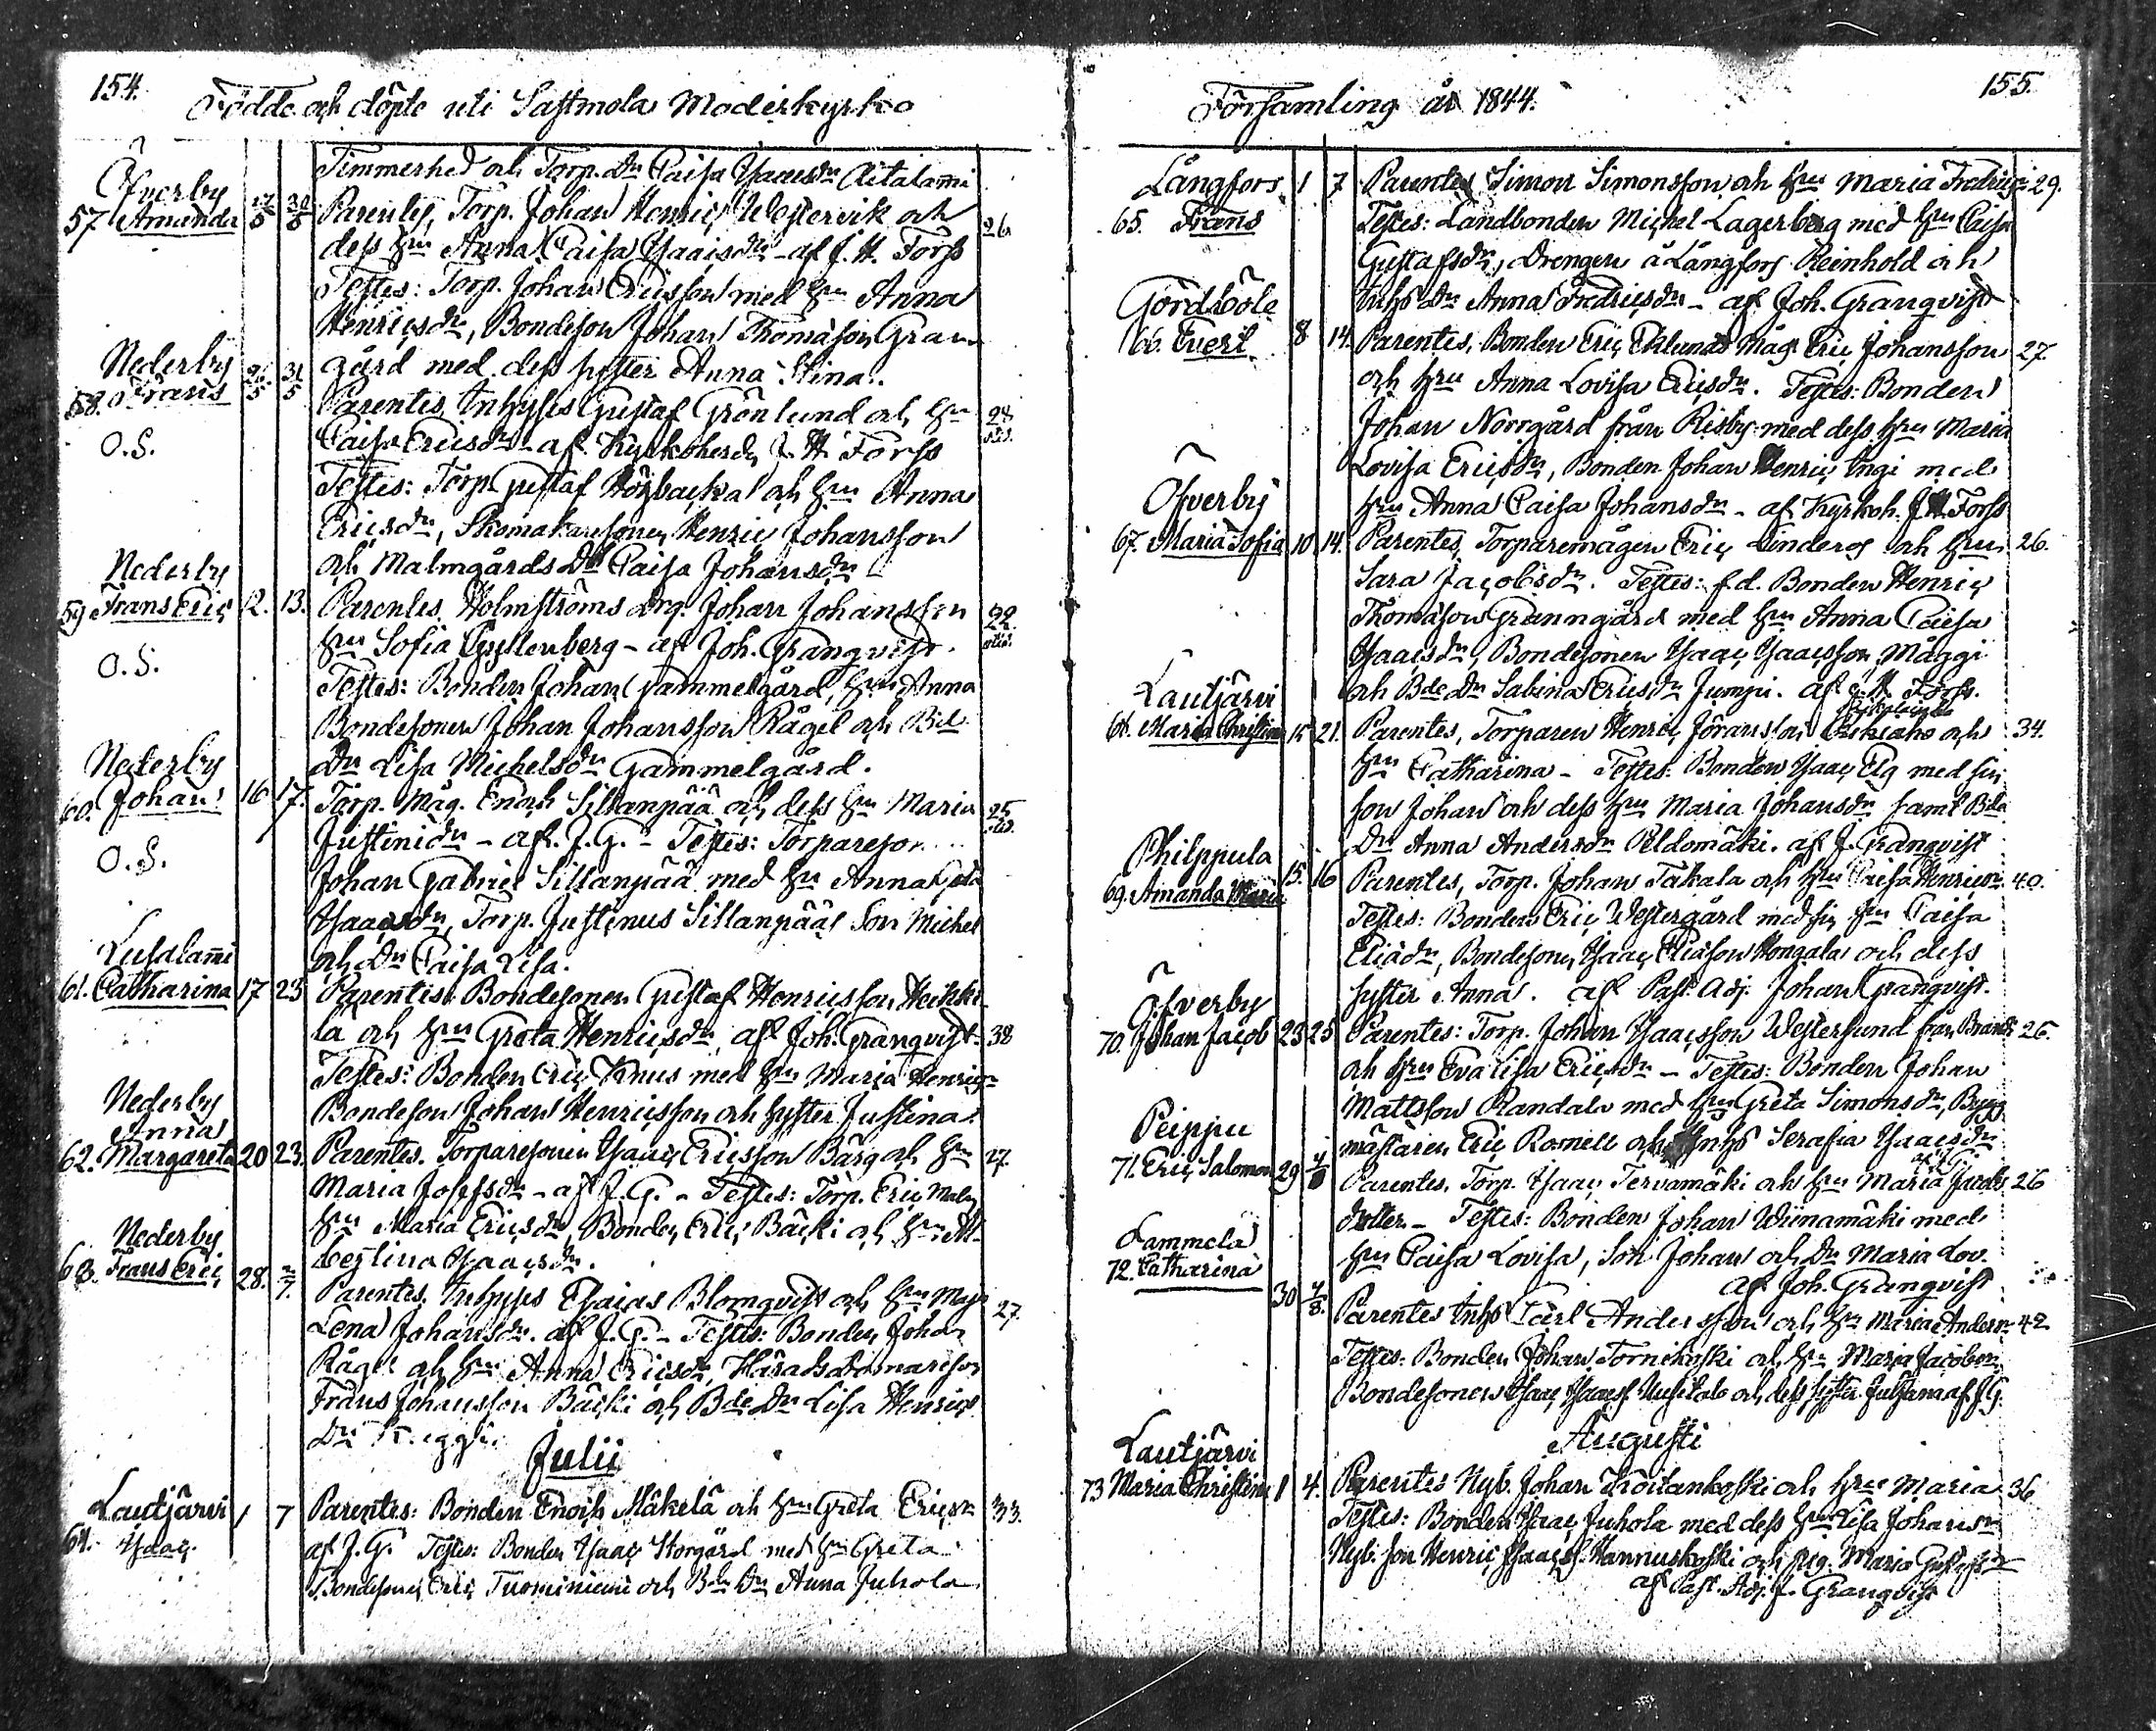 154.
Födde och döpte uti Sastmola Moderkyrko
Timmerhed och Torp. Dr Caisa Isaacsdr Aitalami
Öfverby
57 Amanda 17/5 30/5 Parentes, Torp. Johan Henric Westervik och 26
dess hru Anna Caisa Isaacsdr - af J. H. Forss
Testes: Torp. Johan Ericsson med hru Anna
Henricsdr, Bondeson Johan Thomasson Gran
Nederby
gård med dess syster Anna Stina.
58. Frans 31/5 Parentes Inhyses Gustaf Grönlund och hru 24
O. S.
Caisa Ericsdr - af Kyrkoherdn J. H. Forss
Testes: Torp Gustaf Högbacka och hru Anna
Ericsdr, Skomakaresonen Henric Johansson
och Malmgårds Dr Caisa Johansdr
Nederby
59 Frans Eric 12. 13. Parentes, Holmströms drg. Johan Johansson 22
hru Sofia Gyllenberg - af Joh. Granqvist.
O. S.
Testes: Bonden Johan Gammelgård, hru Anna
Bondesonen Johan Johansson Rågel och Bd
Dr Lisa Michelsdr Gammelgård.
Nederby
60. Johan 16 17. Torp. Måg. Enoch Sillanpää och dess hru Maria 25
Justinidr - af J. G. - Testes: Torpareson
O. S.
Johan Gabriel Sillanpää med hru Anna
Isaacsdr, Torp. Justinus Sillanpääs Son Michel
och Dr Caisa Lisa.
Lusalami
61. Catharina 17 23 Parentes Bondesonen Gustaf Henricsson Heikki
la och hru Greta Henricsdr, af Joh. Granqvist 38
Testes: Bonden Eric Knus med hru Maria Henricsdr
Bondeson Johan Henricsson och syster Justina.
Nederby
Anna
62. Margareta 20 23. Parentes. Torparesonen Isaac Ericsson Bärg och hru 27.
Maria Josefsdr - af J. G. - Testes: Torp. Eric Malm
hru Maria Ericsdr, Bonden Eric Bäcki och hru Al-
bertina Isaacsdr.
Nederby
63. Frans Eric 28. 2/7. Parentes, Inhyses Esaias Blomqvist och hru Maja 27.
Lena Johansdr. af J. G. - Testes: Bonden Johan
Rågel och hru Anna Ericsdr, Häradsdomareson
Frans Johansson Bäcki och Bde Dr Lisa Henrics
Dr
Julii
Lautjärvi 1 7 Parentes: Bonden Enoch Mäkelä och hru Greta Ericsdr 33.
64. Isaac. af J. G. Testes: Bonden Isaac Storgård med hru Greta
Bondesonen Eric Tuominiemi och Bde Dr Anna Juhola
155.
Församling år 1844.
Långfors 1 7 Parentes Simon Simonsson och hru Maria Fredrics 29.
65. Frans
Testes: Landbonden Michel Lagerberg med hru Caisa
Gustafsdr, Drengen å Långfors Reinhold och
Inhs Dr Anna Fredricsdr - af Joh. Granqvist
Gördböle
66. Evert 8 14. Parentes, Bonden Eric Eklunds Måg Eric Johansson 27
och hru Anna Lovisa Ericsdr. Testes: Bonden
Johan Norrgård från Risby med dess hru Maria
Lovisa Ericsdr, Bonden Johan Henric Ingi med
hru Anna Caisa Johansdr - af Kyrkoh. J. H. Forss
Öfverby
67. Maria Sofia 10 14. Parentes, Torparemågen Eric Linderos och hru 26.
Sara Jacobsdr. Testes: f.d. Bonden Henric
Thomasson Granngård med hru Anna Caisa
Isaacsdr, Bondesonen Isaac Isaacsson Mäggi
och Bde Dr Sabina Ericsdr Jumpi. af J. H. Forss.
Lautjärvi
68. Maria Christina 15 21. Parentes, Torparen Henric Jöransson och 34.
hru Catharina - Testes: Bonden Isaac Elg med sin
son Johan och dess hru Maria Johansdr samt Bde
Dr Anna Andersdr Peldomäki. af J. Granqvist
Philppula
69. Amanda Maria 15. 16 Parentes, Torp. Johan Takala och hru Caisa Henricsdr. 40.
Testes: Bonden Eric Westergård med sin hru Caisa
Eliædr, Bondesonen Isaac Eliasson Hongala och dess
syster Anna. af Past. Adj. Johan Granqvist.
Öfverby
70. Johan Jacob 23 25 Parentes: Torp. Johan Isaacsson Westerlund från 26.
och hru Eva Lisa Ericsdr - Testes: Bonden Johan
Mattsson Randala med hru Greta Simonsdr, Bygg
mästaren Eric Romell och Inhs Serafia Isaacsdr
Peippu
71. Eric Salomon 29 4/8 Parentes, Torp. Isaac Tervamäki och hru Maria Jacobs 26
dotter - Testes: Bonden Johan Wiinamäki med
hru Caisa Lovisa, Son Johan och Dr Maria Lov.
af Joh. Granqvist
Lammela
72. Catharina 30 4/8. Parentes Inhs Carl Andersson och hru Maria Andersdr 42
Testes: Bonden Johan Tornikoski och hru Maria Jacobsdr
Bondesonen Isaac Isaacss. Uusitalo och dess syster Justina af J G.
Augusti
Lautjärvi
73 Maria Christina 1 4. Parentes Nyb. Johan Koitankoski och hru Maria 36
Testes: Bonden Isaac Juhola med dess hru Lisa Johansdr
Nyb. son Henric Isaacss. Hannuskoski och pig. Maria Gustafsdr
af Past. Adj. J. Granqvist